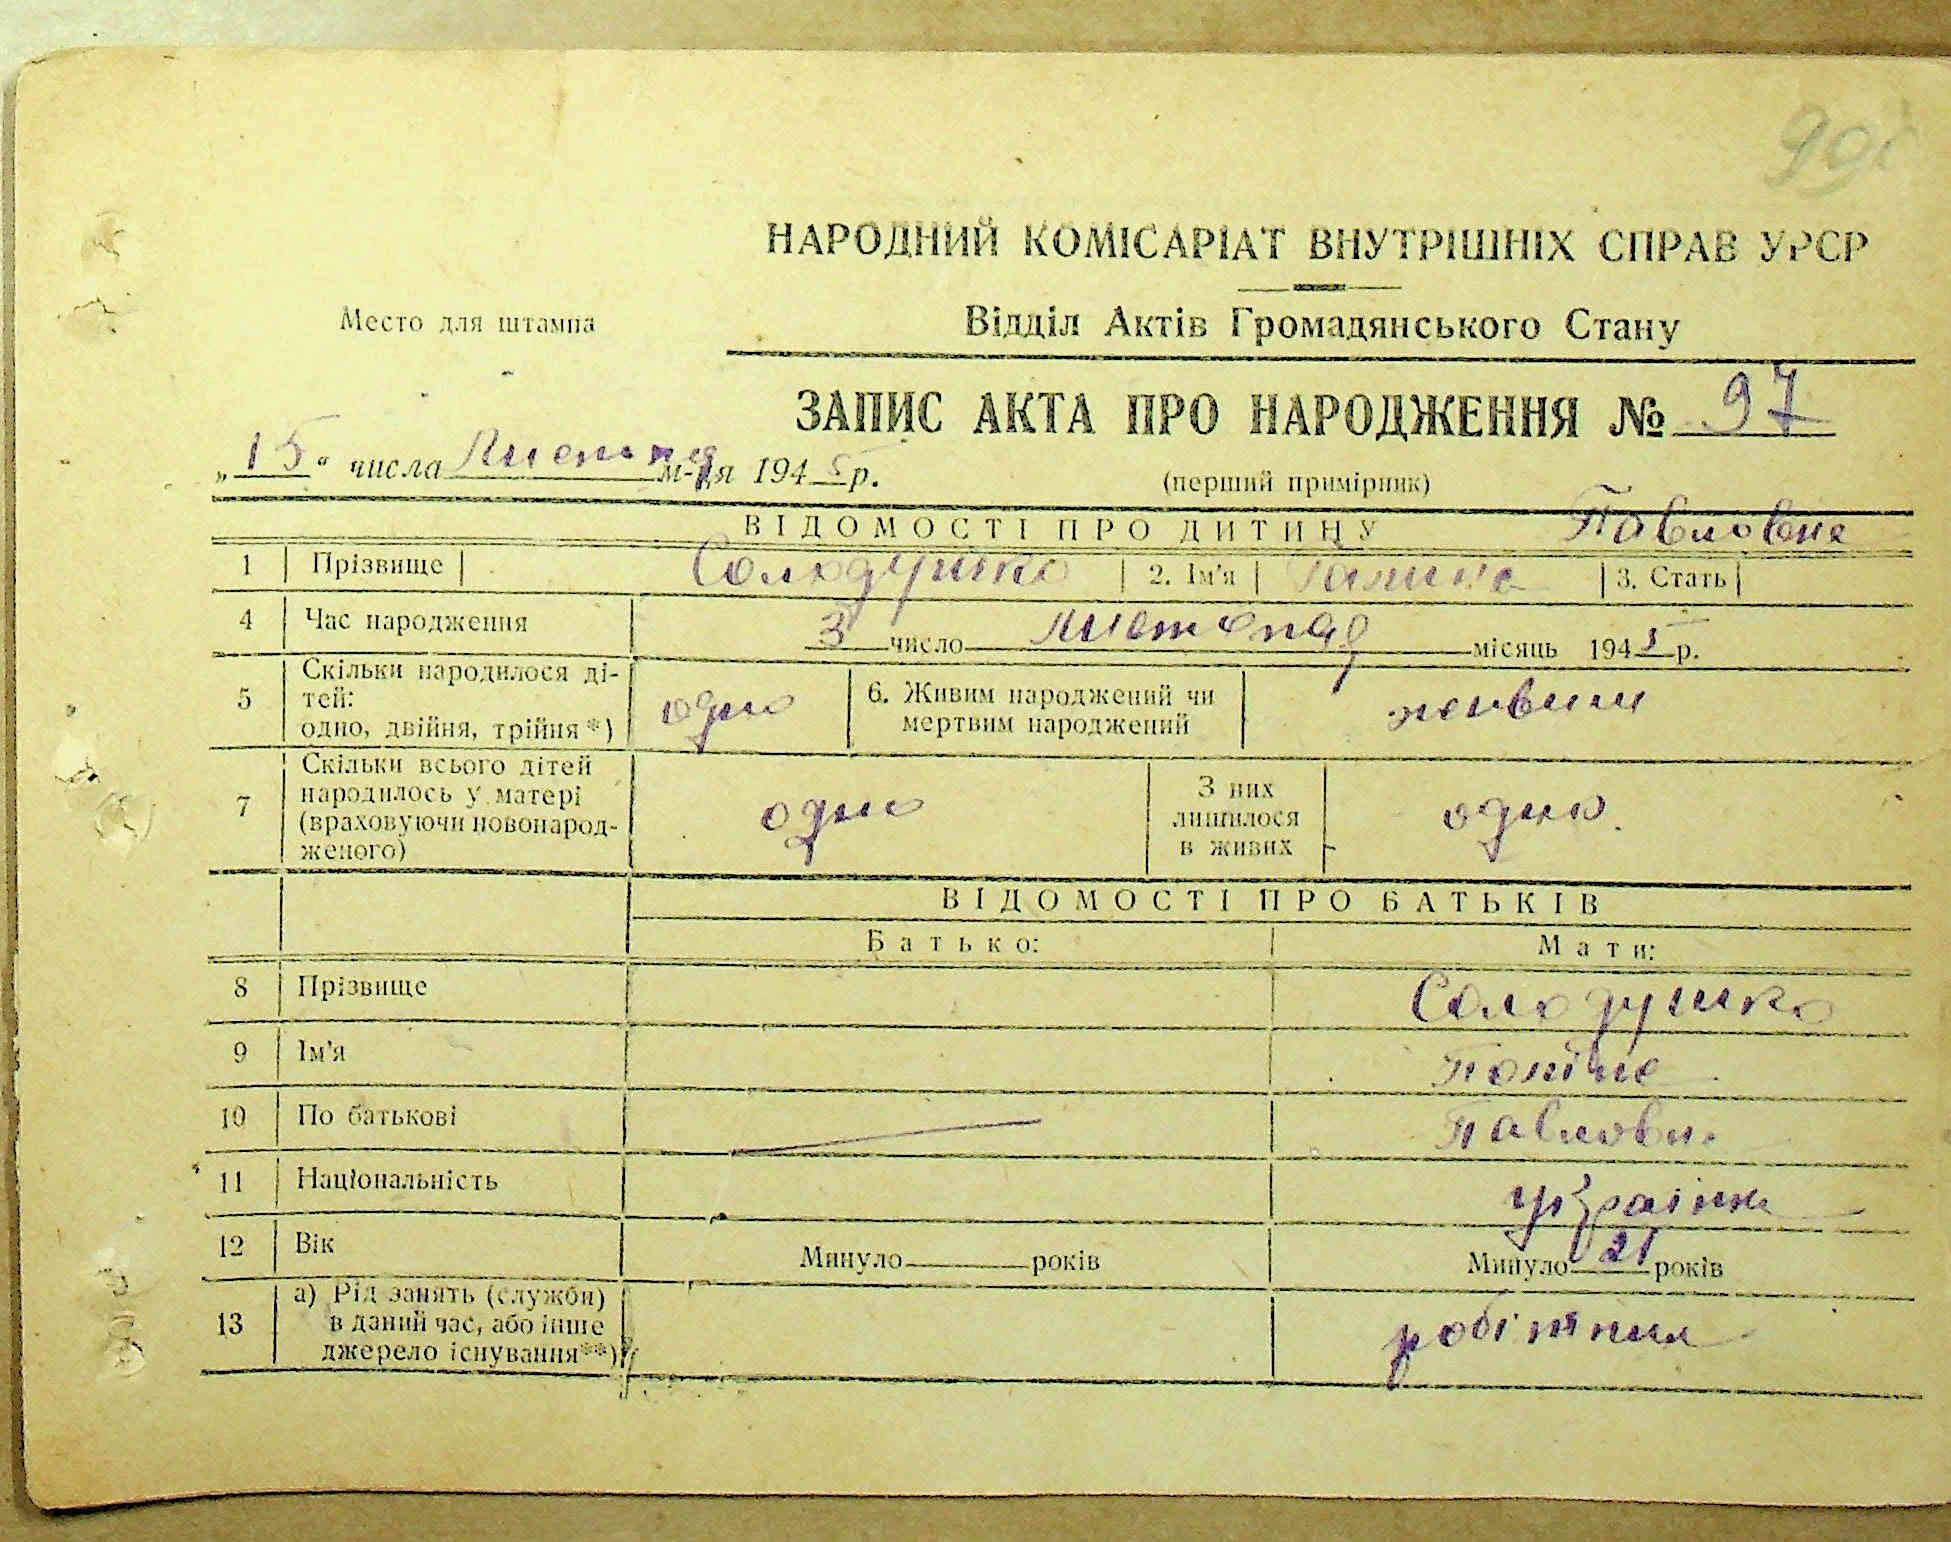 НАРОДНИЙ КОМІСАРІАТ ВНУТРІШНІХ СПРАВ УРСР
Место для штампа
Відділ Актів Громадянського Стану
ЗАПИС АКТА ПРО НАРОДЖЕННЯ № 97
„15“ числа листопад м-ця 1945 р.
(перший примірник)
ВІДОМОСТІ ПРО ДИТИНУ Павловна
1 Прізвище Солодушко 2. Ім'я Галина 3. Стать
4 Час народження 3 число листопад місяць 1945 р.
5 Скільки народилося ді-
тей:
одно, двійня, трійня *) одно
6. Живим народжений чи
мертвим народжений живим
7 Скільки всього дітей
народилось у матері
(враховуючи новонарод-
женого) одно
З них
лишилося
в живих одно.
ВІДОМОСТІ ПРО БАТЬКІВ
Батько: Мати:
8 Прізвище Солодушко
9 Ім'я Поліна
10 По батькові Павловна
11 Національність українка
12 Вік Минуло років Минуло 21 років
13 а) Рід занять (служби)
в даний час, або інше
джерело існування**) робітниця